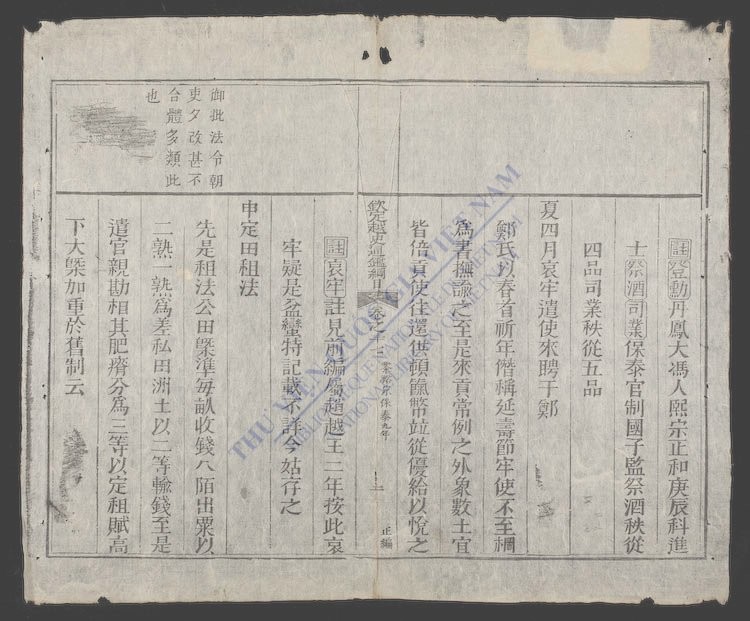 註 登勳丹鳳大馮人熙宗正和庚辰科進
士 祭酒 司業 保泰官制國子監祭酒秩從
四品司業秩從五品
夏四月哀牢遣使來聘于鄭
鄭氏以春首祈年僭稱延壽節牢使不至棡
爲書撫諭之至是來貢常例之外象數土宜
皆倍貢使往還供頓餼幣竝從優給以悅之
欽定越史通鑑綱目 卷之 保泰九年 正編
註 哀牢註見前編屬趙越王二年按此哀
牢疑是盆蠻特記載不詳今姑存之
申定田租法
先是租法公田槩準每畝收錢八陌出粟以
二熟一熟爲差私田洲土以二等輸錢至是
遣官親勘相其肥瘠分爲三等以定租賦高
下大槩加重於舊制云
御批法令朝
更夕改甚不
合體多類此
也
THƯ VIỆN QUỐC GIA VIỆT NAM
BIBLIOTHÈQUE NATIONALE DU VIETNAM
NATIONAL LIBRARY OF VIETNAM